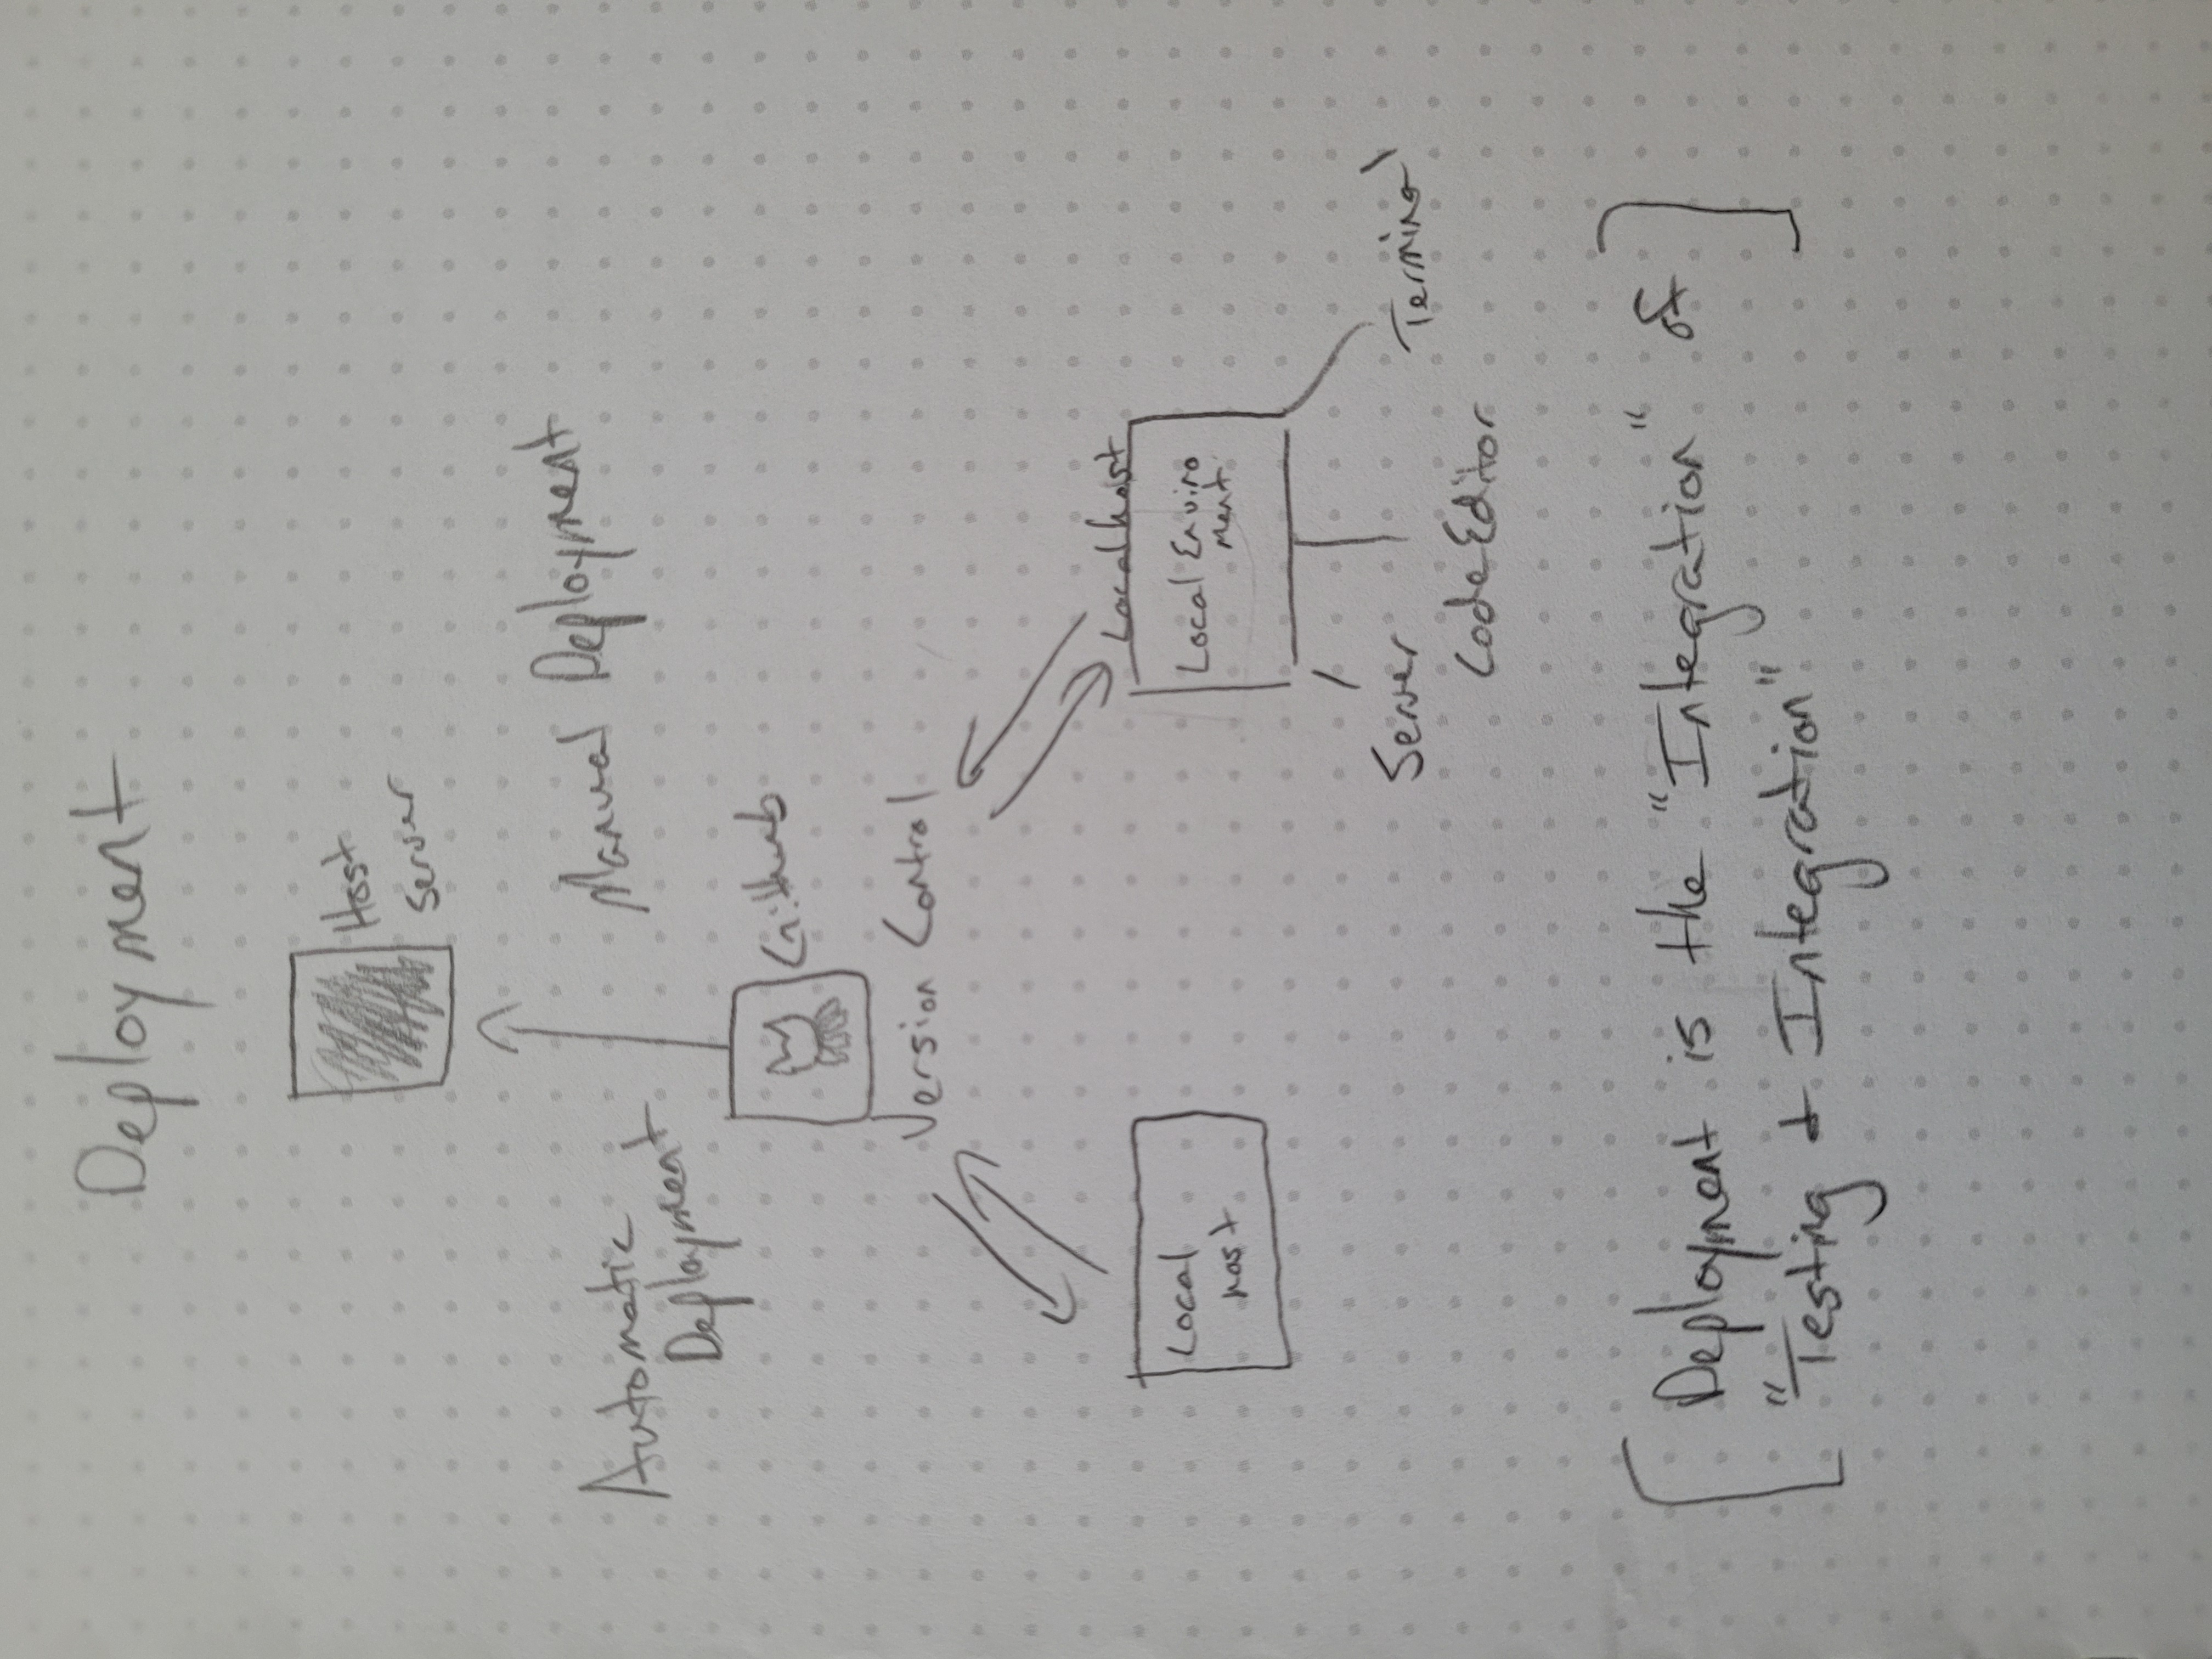 Deployment
Host
Server
Automatic
Deployment
Manual Deployment
Github
Version Control
Local
host
Localhost
Local Enviro
ment
Server
Code Editor
Terminal
Deployment is the "Integration" of
"Testing & Integration"